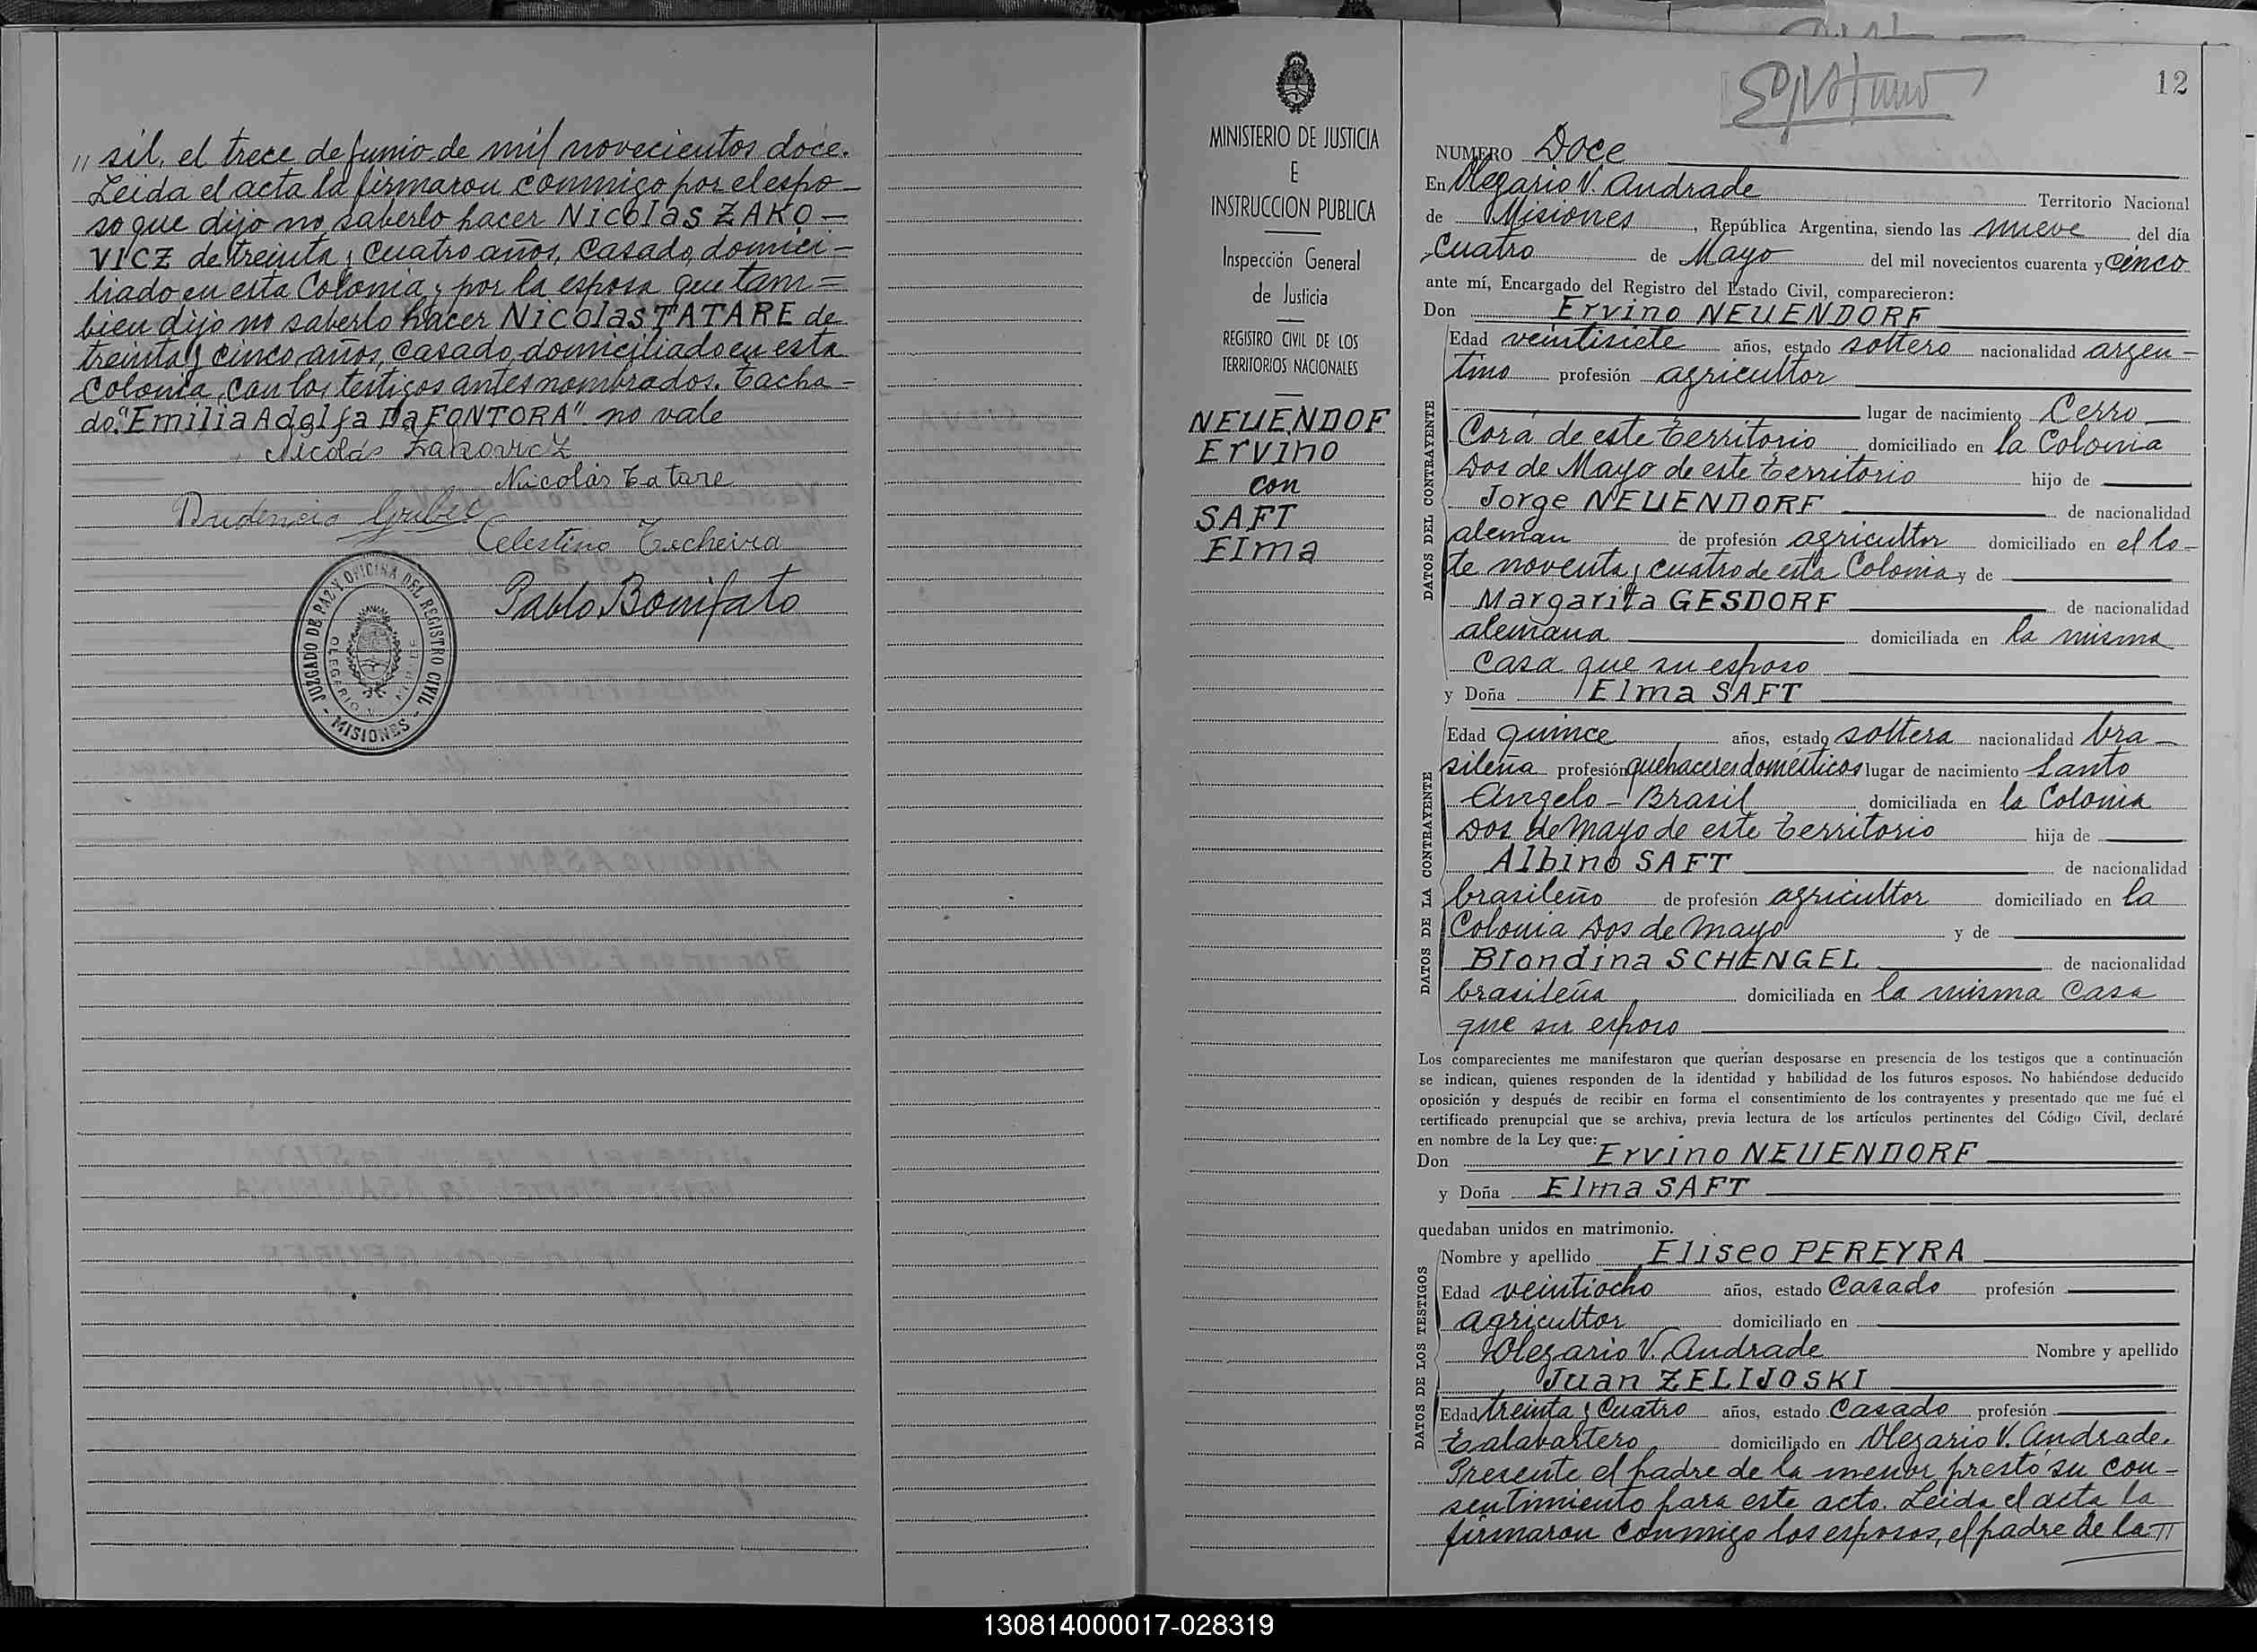 " sil, el trece de junio de mil novecientos doce.
Leida el acta la firmaron conmigo por el espo-
so que dijo no saberlo hacer Nicolas ZAKO-
VICZ de treinta y cuatro años, casado, domici-
liado en esta Colonia y por la esposa que tam=
bien dijo no saberlo hacer Nicolas TATARE de
treinta y cinco años, casado, domiciliado en esta
Colonia, con los testigos antes nombrados. Tacha-
do: "Emilia Adolfa Da FONTORA" no vale
Nicolás Zakovicz
Nicolás Tatare
Prudencio Gruber
Celestino Techeira
Pablo Bonifato
JUZGADO DE PAZ Y OFICINA DEL REGISTRO CIVIL
- MISIONES -
MINISTERIO DE JUSTICIA
E
INSTRUCCION PUBLICA
Inspección General
de Justicia
REGISTRO CIVIL DE LOS
TERRITORIOS NACIONALES
NEUENDOF
Ervino
con
SAFT
Elma
12
NUMERO Doce
En Olegario V. Andrade Territorio Nacional
de Misiones, República Argentina, siendo las nueve del día
Cuatro de Mayo del mil novecientos cuarenta y cinco
ante mí, Encargado del Registro del Estado Civil, comparecieron:
Don Ervino NEUENDORF
DATOS DEL CONTRAYENTE
Edad veintisiete años, estado soltero nacionalidad argen-
tino profesión agricultor
lugar de nacimiento Cerro
Corá de este Territorio domiciliado en la Colonia
Dos de Mayo de este Territorio hijo de
Jorge NEUENDORF de nacionalidad
aleman de profesión agricultor domiciliado en el lo-
te noventa y cuatro de esta Colonia y de
Margarita GESDORF de nacionalidad
alemana domiciliada en la misma
Casa que su esposo
y Doña Elma SAFT
DATOS DE LA CONTRAYENTE
Edad quince años, estado soltera nacionalidad bra-
sileña profesión quehaceres domésticos lugar de nacimiento Santo
Angelo - Brasil domiciliada en la Colonia
Dos de Mayo de este Territorio hija de
Albino SAFT de nacionalidad
brasileño de profesión agricultor domiciliado en la
Colonia Dos de Mayo y de
Blondina SCHENGEL de nacionalidad
brasileña domiciliada en la misma Casa
que su esposo
Los comparecientes me manifestaron que querían desposarse en presencia de los testigos que a continuación
se indican, quienes responden de la identidad y habilidad de los futuros esposos. No habiéndose deducido
oposición y después de recibir en forma el consentimiento de los contrayentes y presentado que me fué el
certificado prenupcial que se archiva, previa lectura de los artículos pertinentes del Código Civil, declaré
en nombre de la Ley que:
Don Ervino NEUENDORF
y Doña Elma SAFT
quedaban unidos en matrimonio.
DATOS DE LOS TESTIGOS
Nombre y apellido Eliseo PEREYRA
Edad veintiocho años, estado Casado profesión
agricultor domiciliado en
Olegario V. Andrade Nombre y apellido
Juan ZELIJOSKI
Edad treinta y Cuatro años, estado Casado profesión
Talabartero domiciliado en Olegario V. Andrade.
Presente el padre de la menor prestó su con-
sentimiento para este acto. Leida el acta la
firmaron conmigo los esposos, el padre de la "
130814000017-028319